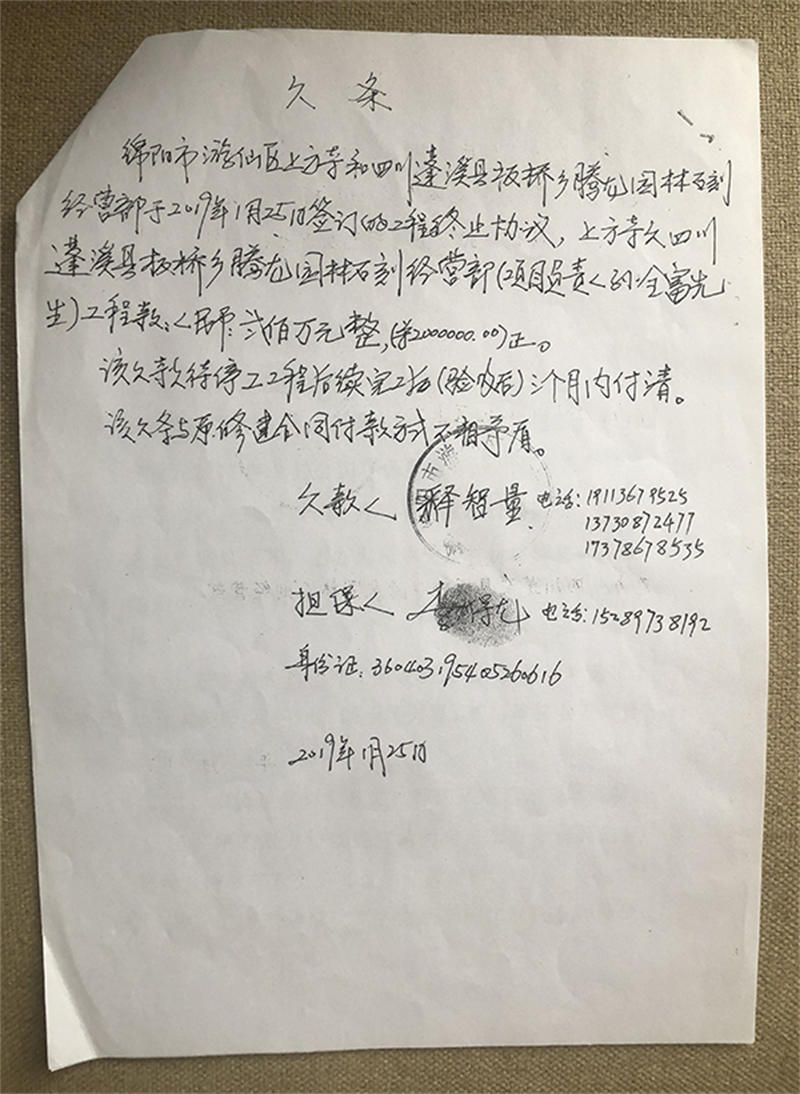 欠 条
绵阳市游仙区上方寺和四川蓬溪县板桥乡腾龙园林石刻
经营部于2019年1月25日签订的工程终止协议，上方寺欠四川
蓬溪县板桥乡腾龙园林石刻经营部(项目负责人:全富先
生)工程款:人民币:贰佰万元整,(￥2000000.00)正。
该欠款待停工工程后续完工后(验收后)三个月内付清。
该欠条与原修建合同付款方式不相矛盾。
欠款人 释智量 电话:19113679525
13730872477
17378678535
市游
担保人 电话:15289738192
身份证:360403195405260616
2019年1月25日